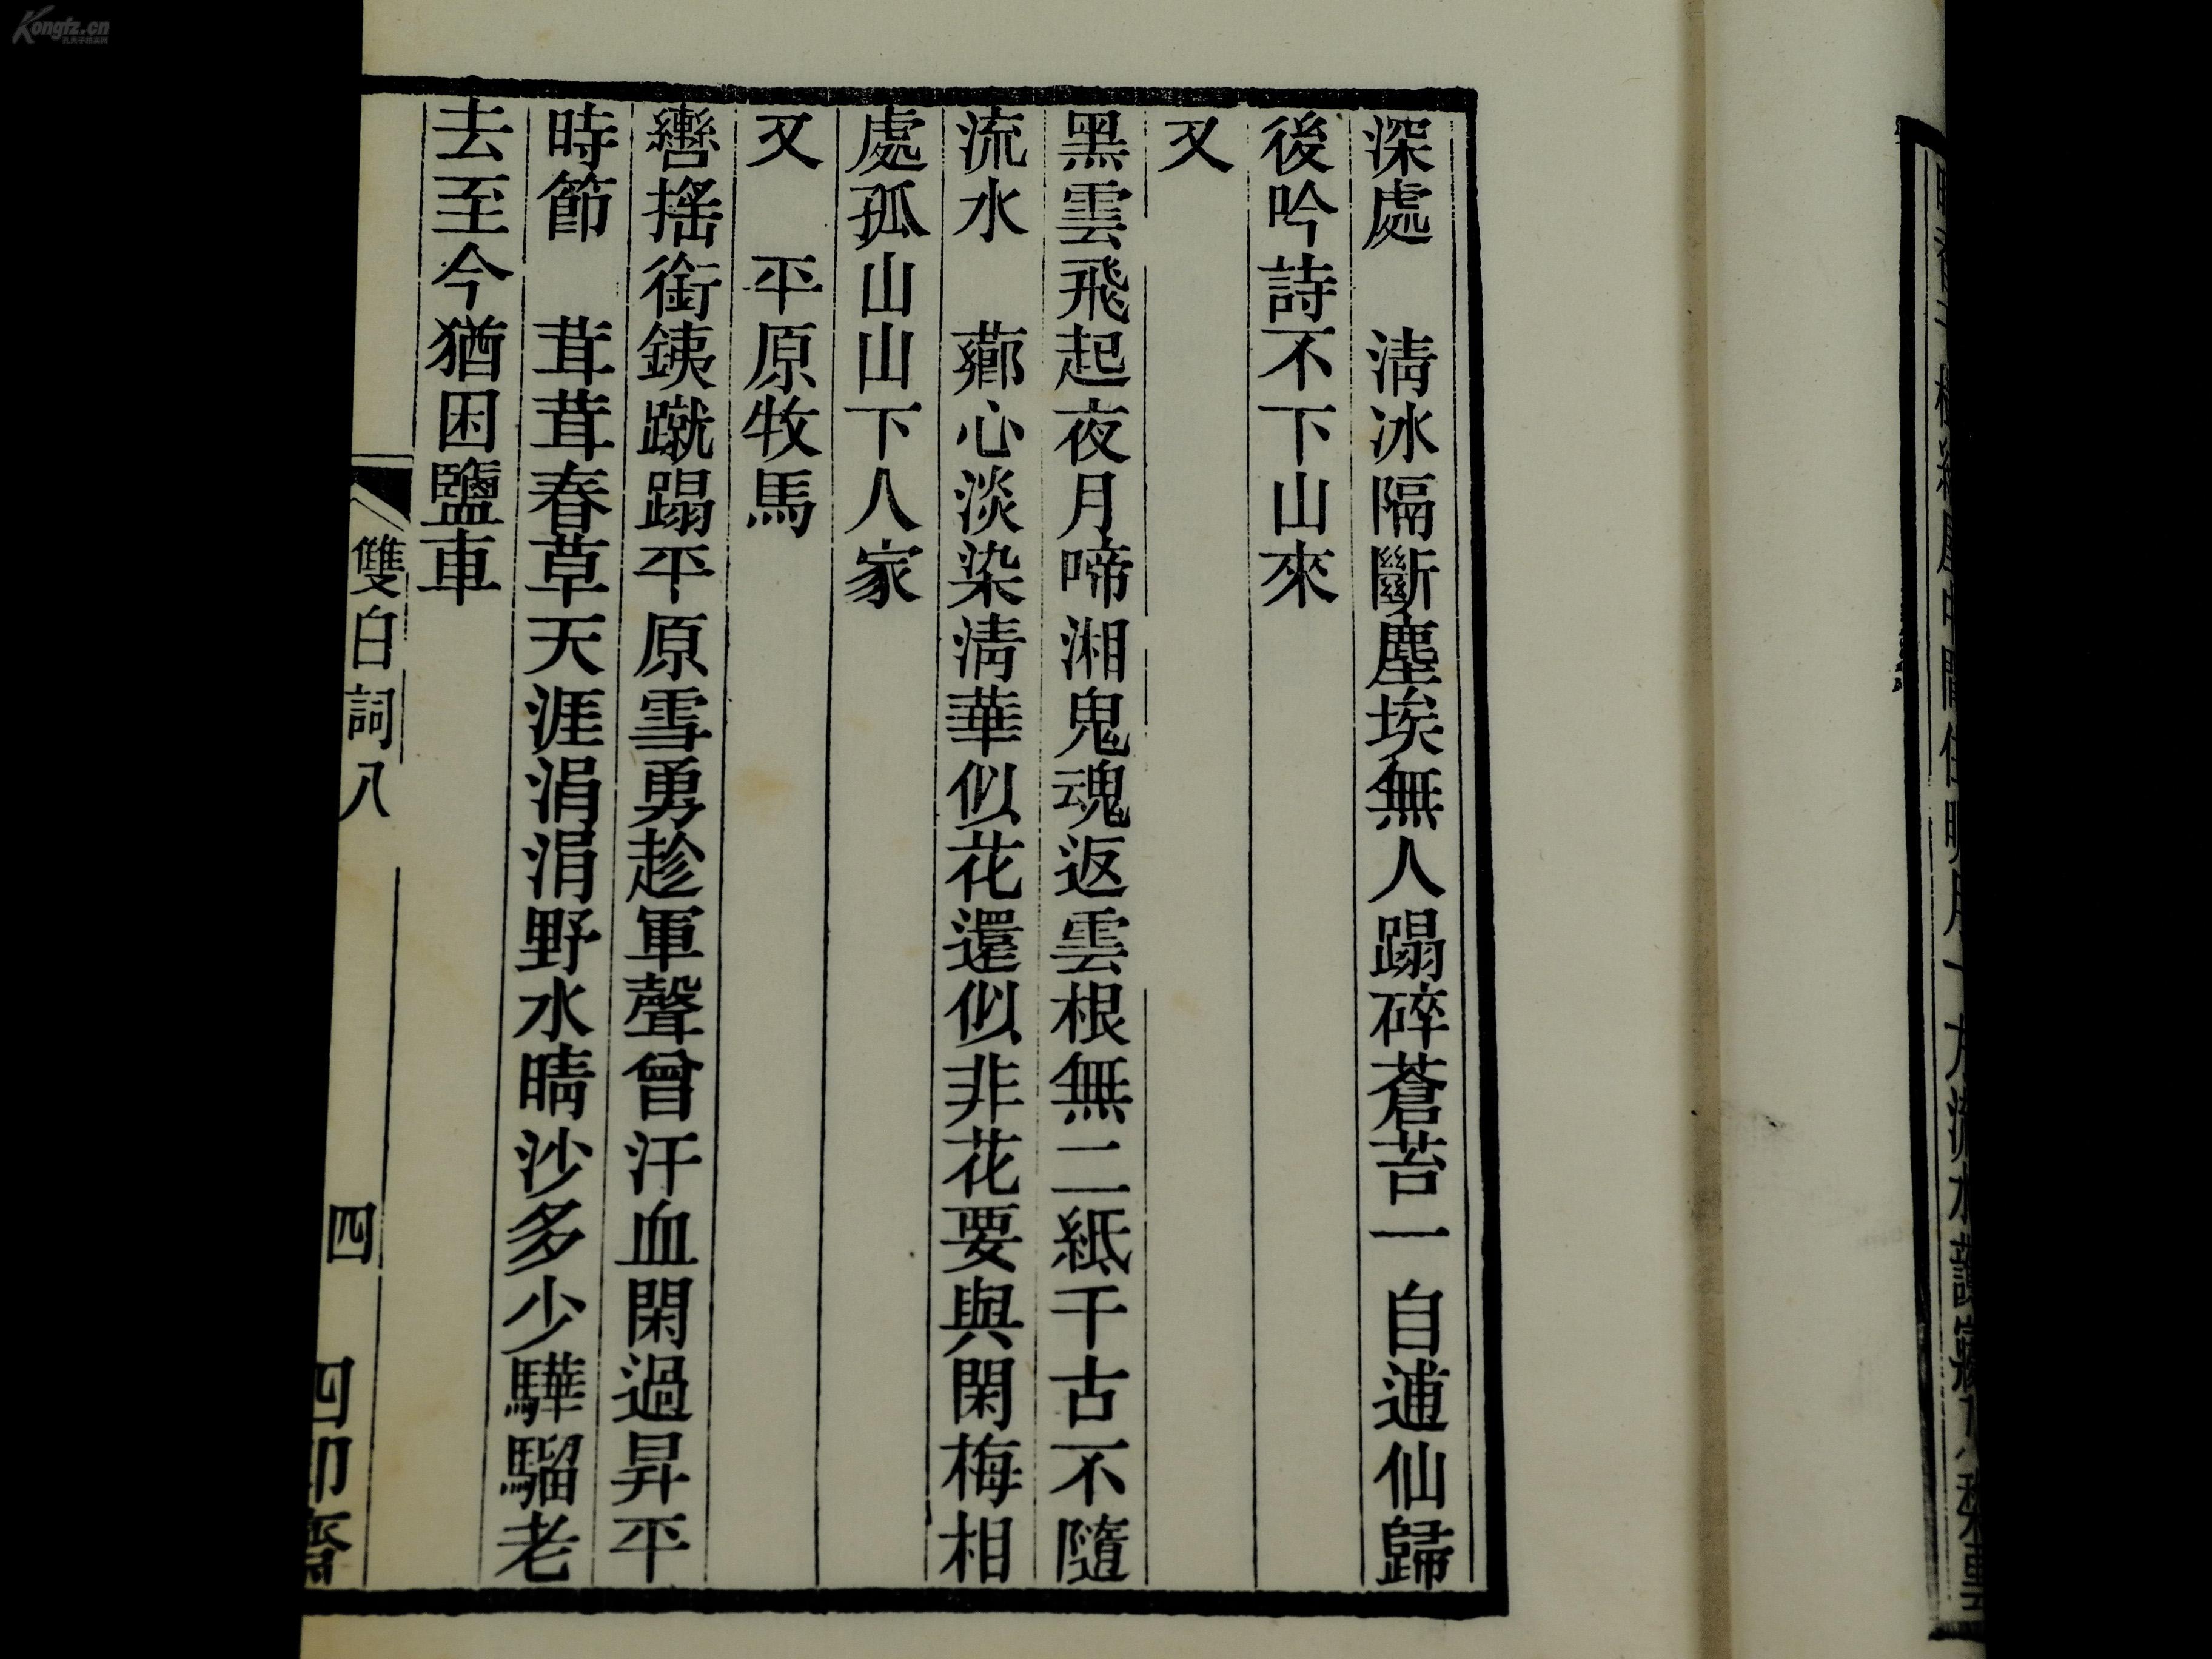 深處　清冰隔斷塵埃無人蹋碎蒼苔一自逋仙歸
後吟詩不下山來
又
黑雲飛起夜月啼湘鬼魂返雲根無二紙千古不隨
流水　薌心淡染清華似花還似非花要與閑梅相
處孤山山下人家
又　平原牧馬
轡搖銜鉄蹴蹋平原雪勇趁軍聲曾汗血閑過昇平
時節　茸茸春草天涯涓涓野水晴沙多少驊騮老
去至今猶困鹽車
雙白詞八
四
四印齋
Kongfz.cn